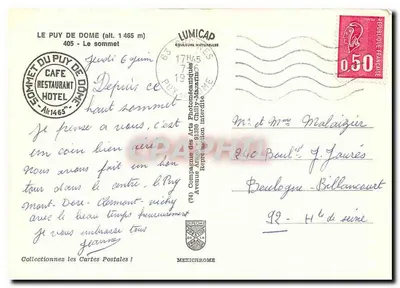 LE PUY DE DOME (alt. 1 465 m)
405 - Le sommet
LUMICAP
SOMMET DU PUY DE DOME
CAFE
RESTAURANT
HOTEL
Alt 1465
jeudi 6 juin
Depuis ce
haut sommet
je pense a vous, c'est
un coin bien
Nous nous fait un bon
tour dans le centre. le Puy
Mont-Dore. Clermont. Vichy
avec le beau temps
je vous embrasse tous
Jeanne
63
17H45
PUY DE DOME
(74) Compagnie des Arts Photomécaniques
91320 Chilly-Mazarin
Reproduction interdite
0,50
Mr et Mme Malaizier
240 Boul. J. Jaurès
Boulogne-Billancourt
92 - Hts de seine
MEXICHROME
Collectionnez les Cartes Postales !